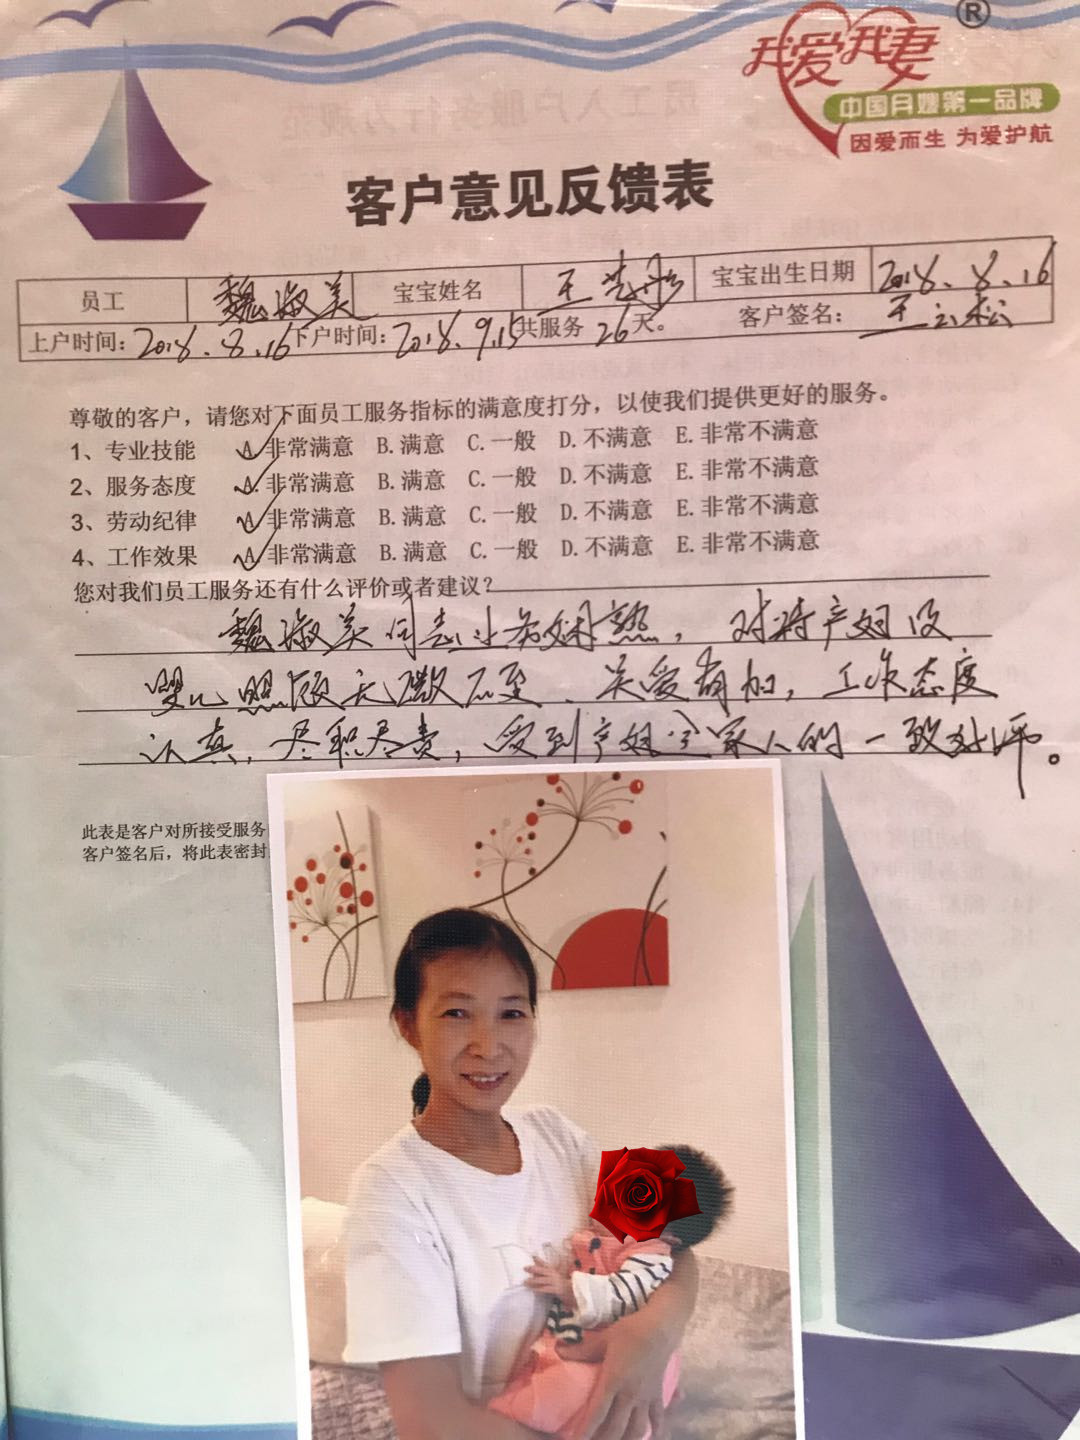 我爱我妻®
中国月嫂第一品牌
因爱而生 为爱护航
客户意见反馈表
员工 魏淑美 宝宝姓名 王 宝宝出生日期 2018.8.16
上户时间:2018.8.16 下户时间:2018.9.15 共服务 26 天。 客户签名: 王云松
尊敬的客户，请您对下面员工服务指标的满意度打分，以使我们提供更好的服务。
1、专业技能 A.非常满意 B.满意 C.一般 D.不满意 E.非常不满意
2、服务态度 A.非常满意 B.满意 C.一般 D.不满意 E.非常不满意
3、劳动纪律 A.非常满意 B.满意 C.一般 D.不满意 E.非常不满意
4、工作效果 A.非常满意 B.满意 C.一般 D.不满意 E.非常不满意
您对我们员工服务还有什么评价或者建议?
魏淑美同志业务娴熟，对待产妇及
婴儿照顾无微不至、关爱有加，工作态度
认真，尽职尽责，受到产妇全家人的一致好评。
此表是客户对所接受服务
客户签名后，将此表密封